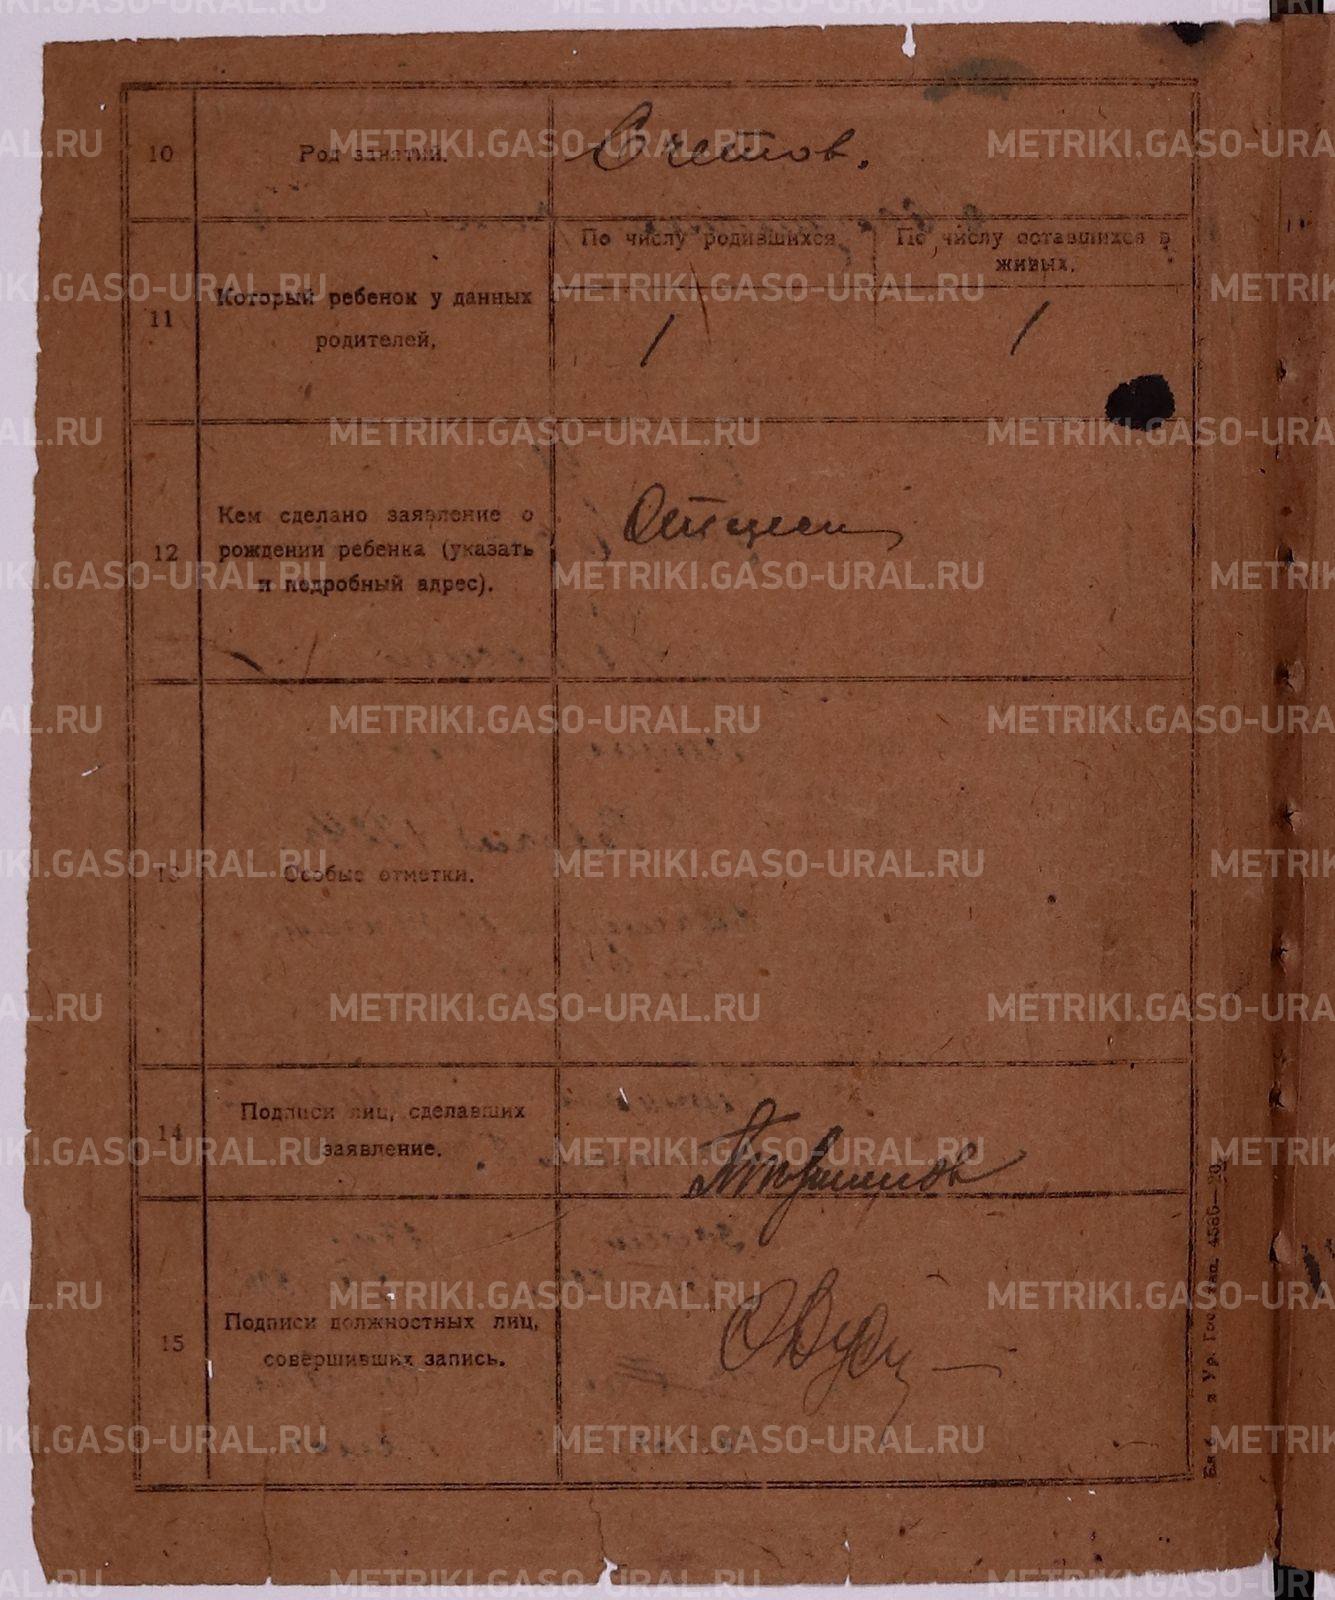 10
Род занятий.
Счетов.
11
Который ребенок у данных
родителей.
По числу родившихся
По числу оставшихся в
живых.
1
1
12
Кем сделано заявление о
рождении ребенка (указать
и подробный адрес).
Отцем
13
Особые отметки.
14
Подписи лиц, сделавших
заявление.
15
Подписи должностных лиц,
совершивших запись.
Ур. Гос.
4586—20
METRIKI.GASO-URAL.RU